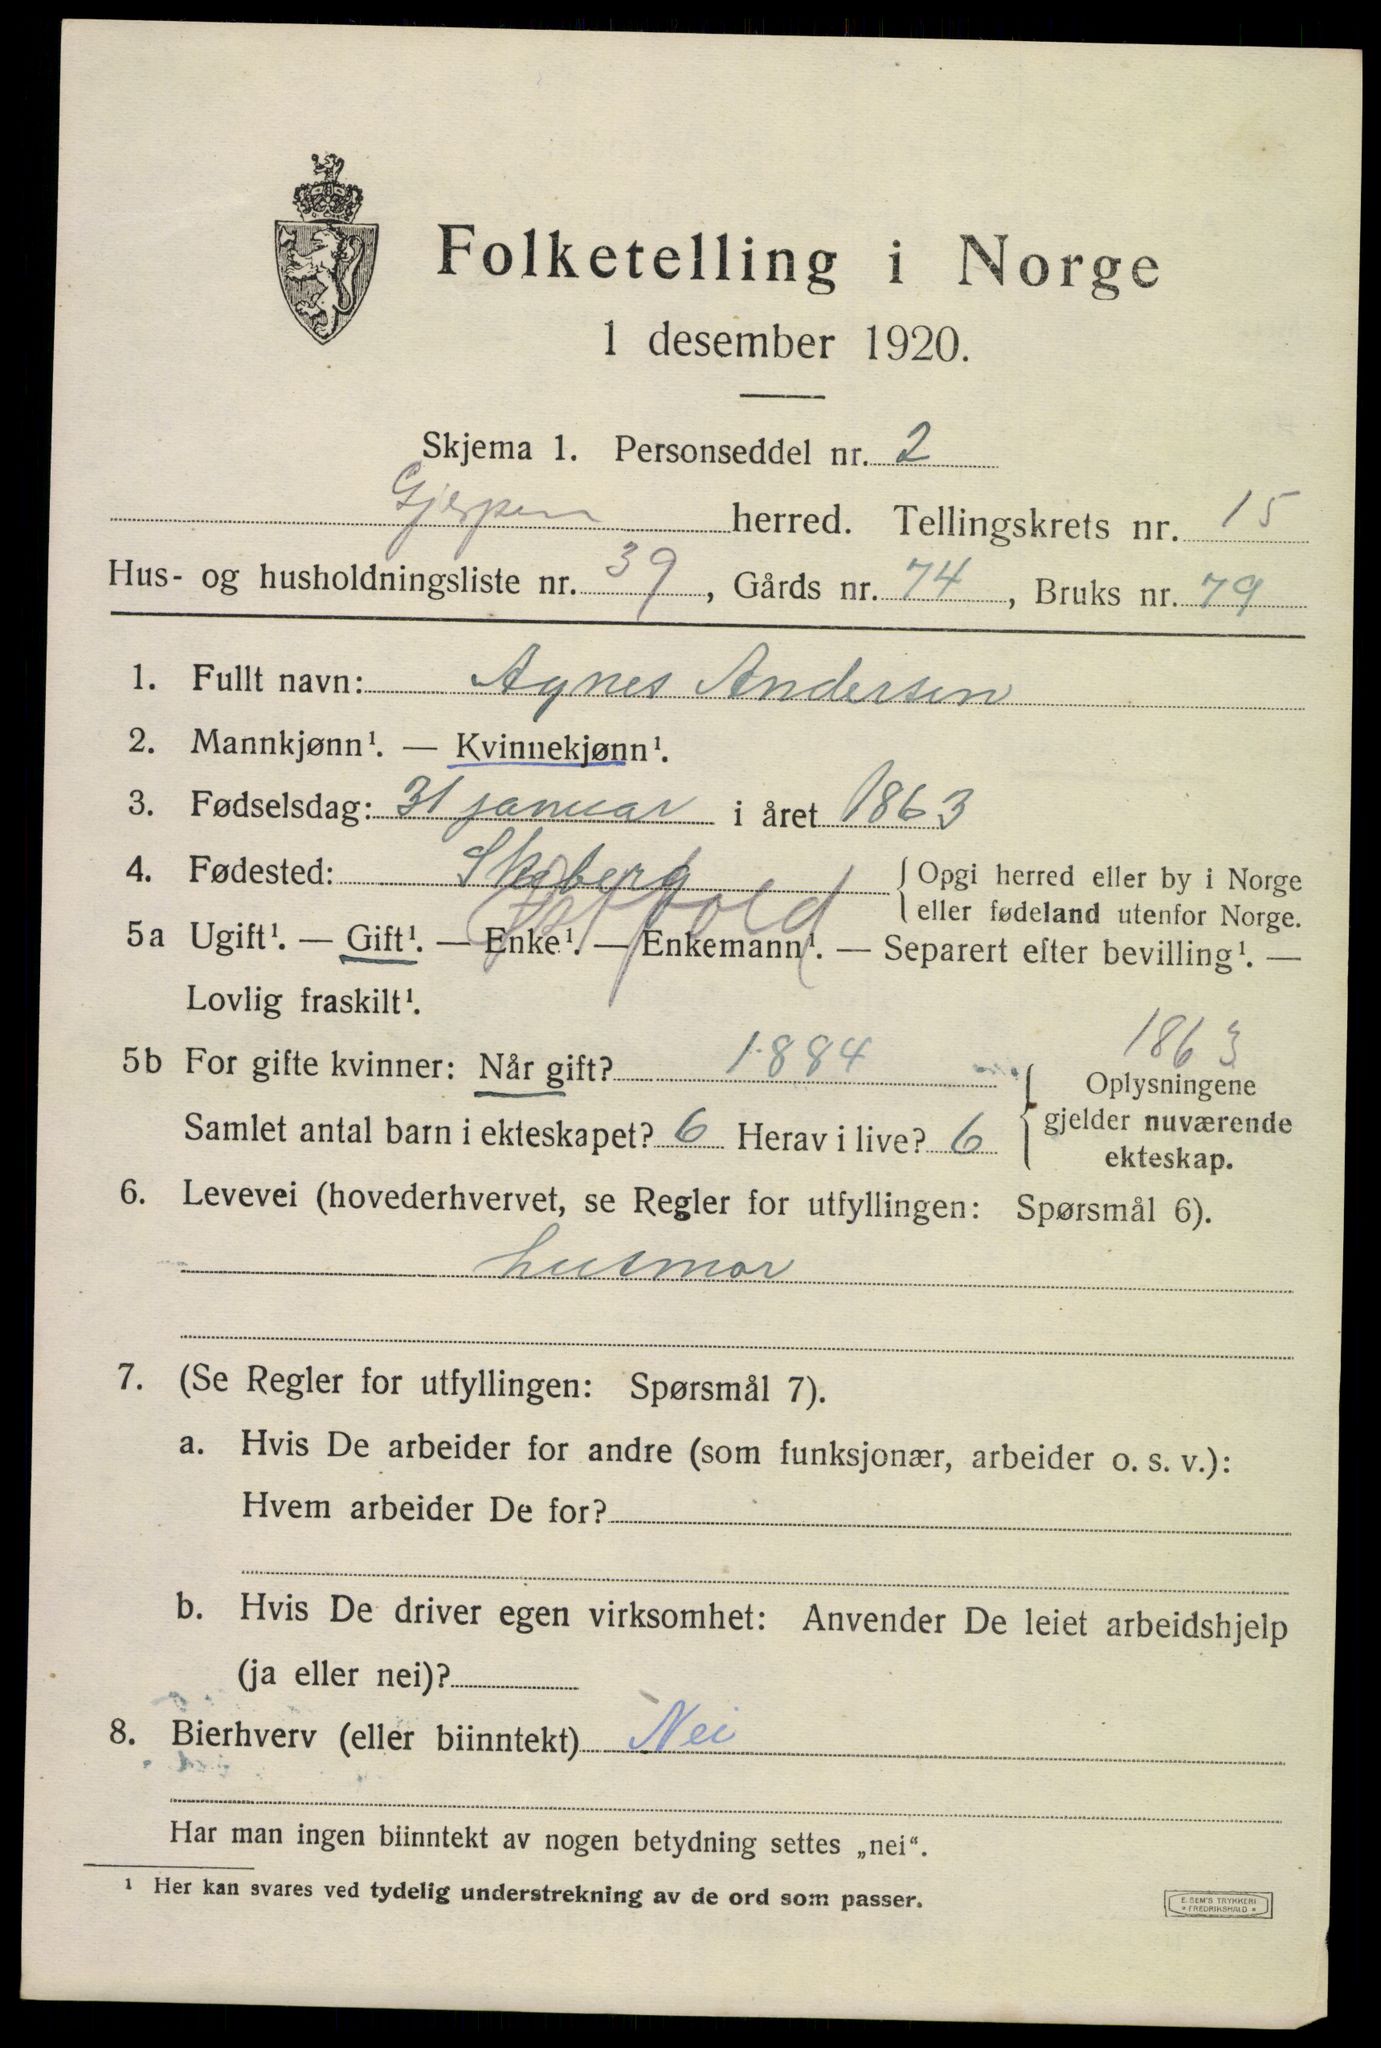 Folketelling i Norge
1 desember 1920.
Skjema 1. Personseddel nr. 2
Gjerpen herred. Tellingskrets nr. 15
Hus- og husholdningsliste nr. 39, Gårds nr. 74, Bruks nr. 79
1. Fullt navn: Agnes Andersen
2. Mannkjønn¹. — Kvinnekjønn¹.
3. Fødselsdag: 31 januar i året 1863
4. Fødested: Opgi herred eller by i Norge
eller fødeland utenfor Norge.
5a Ugift¹. — Gift¹. — Enke¹. — Enkemann¹. — Separert efter bevilling¹. —
Lovlig fraskilt¹.
1863
5b For gifte kvinner: Når gift? 1884 Oplysningene
Samlet antal barn i ekteskapet? 6 Herav i live? 6 gjelder nuværende
ekteskap.
6. Levevei (hovederhvervet, se Regler for utfyllingen: Spørsmål 6).
husmor
7. (Se Regler for utfyllingen: Spørsmål 7).
a. Hvis De arbeider for andre (som funksjonær, arbeider o. s. v.):
Hvem arbeider De for?
b. Hvis De driver egen virksomhet: Anvender De leiet arbeidshjelp
(ja eller nei)?
8. Bierhverv (eller biinntekt) Nei
Har man ingen biinntekt av nogen betydning settes „nei“.
¹ Her kan svares ved tydelig understrekning av de ord som passer.
E. SEM'S TRYKKERI
* FREDRIKSHALD *